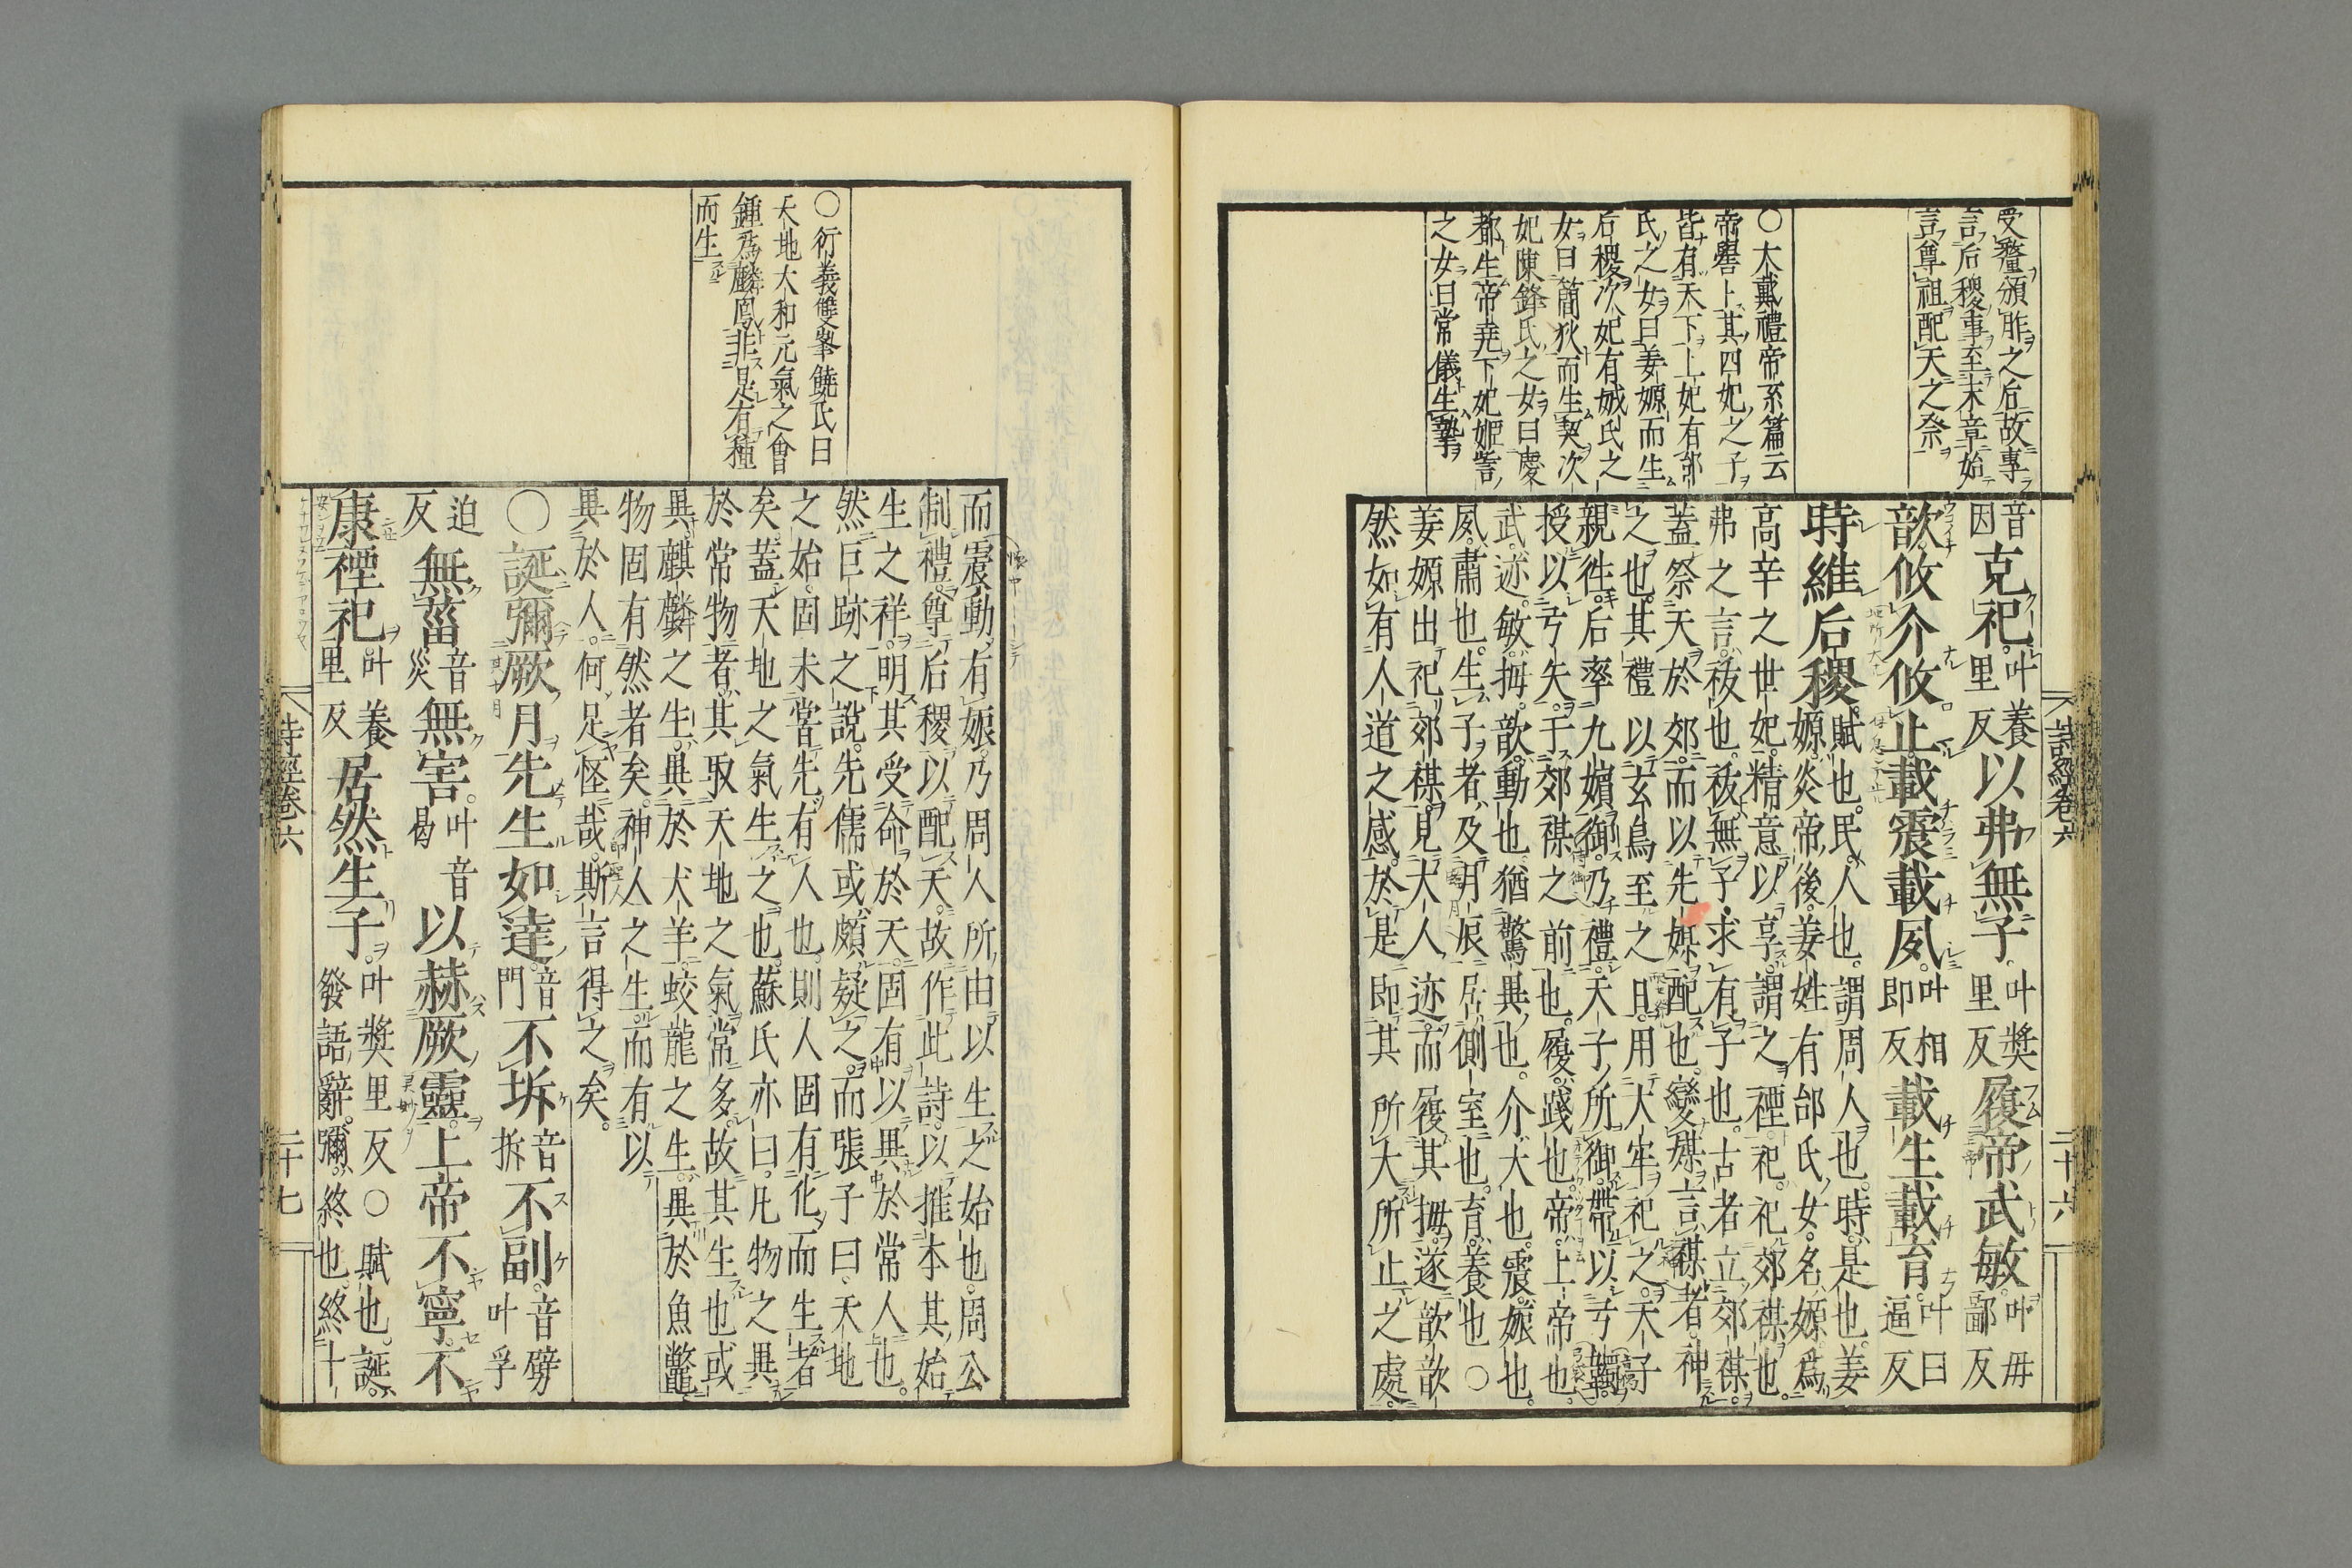 受釐頒胙之后故專
言后稷事至末章始
言尊祖配天之祭
〇大戴禮帝系篇云
帝嚳卜其四妃之子
皆有天下上妃有邰
氏之女曰姜嫄而生
后稷次妃有娀氏之
女曰簡狄而生契次
妃陳鋒氏之女曰慶
都生帝堯下妃娵訾
之女曰常儀生摯
音因克祀叶養里反以弗無子叶奬里反履帝武敏叶毋鄙反
歆攸介攸止載震載夙叶相即反載生載育叶曰逼反
時維后稷賦也民人也謂周人也時是也姜
嫄炎帝後姜姓有邰氏女名嫄爲
高辛之世妃精意以享謂之禋祀祀郊禖也
弗之言祓也祓無子求有子也古者立郊禖
蓋祭天於郊而以先媒配也變媒言禖者神
之也其禮以玄鳥至之日用大牢祀之天子
親徃后率九嬪御乃禮天子所御帶以弓韣
授以弓矢于郊禖之前也履踐也帝上帝也
武迹敏拇歆動也猶驚異也介大也震娠也
夙肅也生子者及月辰居側室也育養也〇
姜嫄出祀郊禖見大人迹而履其拇遂歆歆
然如有人道之感於是即其所大所止之處
詩經卷六
二十六
〇衍義雙峯饒氏曰
天地大和元氣之會
鍾爲麟鳳非是有種
而生
而震動有娠乃周人所由以生之始也周公
制禮尊后稷以配天故作此詩以推本其始
生之祥明其受命於天固有以異於常人也
然巨跡之說先儒或頗疑之而張子曰天地
之始固未甞先有人也則人固有化而生者
矣蓋天地之氣生之也蘇氏亦曰凡物之異
於常物者其取天地之氣常多故其生也或
異麒麟之生異於犬羊蛟龍之生異於魚鼈
物固有然者矣神人之生而有以
異於人何足怪哉斯言得之矣
〇誕彌厥月先生如達音門不坼音拆不副音劈叶孚
迫反無菑音災無害叶音曷以赫厥靈上帝不寧不
康禋祀叶養里反居然生子叶奬里反〇賦也誕發語辭彌終也終十
詩經卷六
二十七